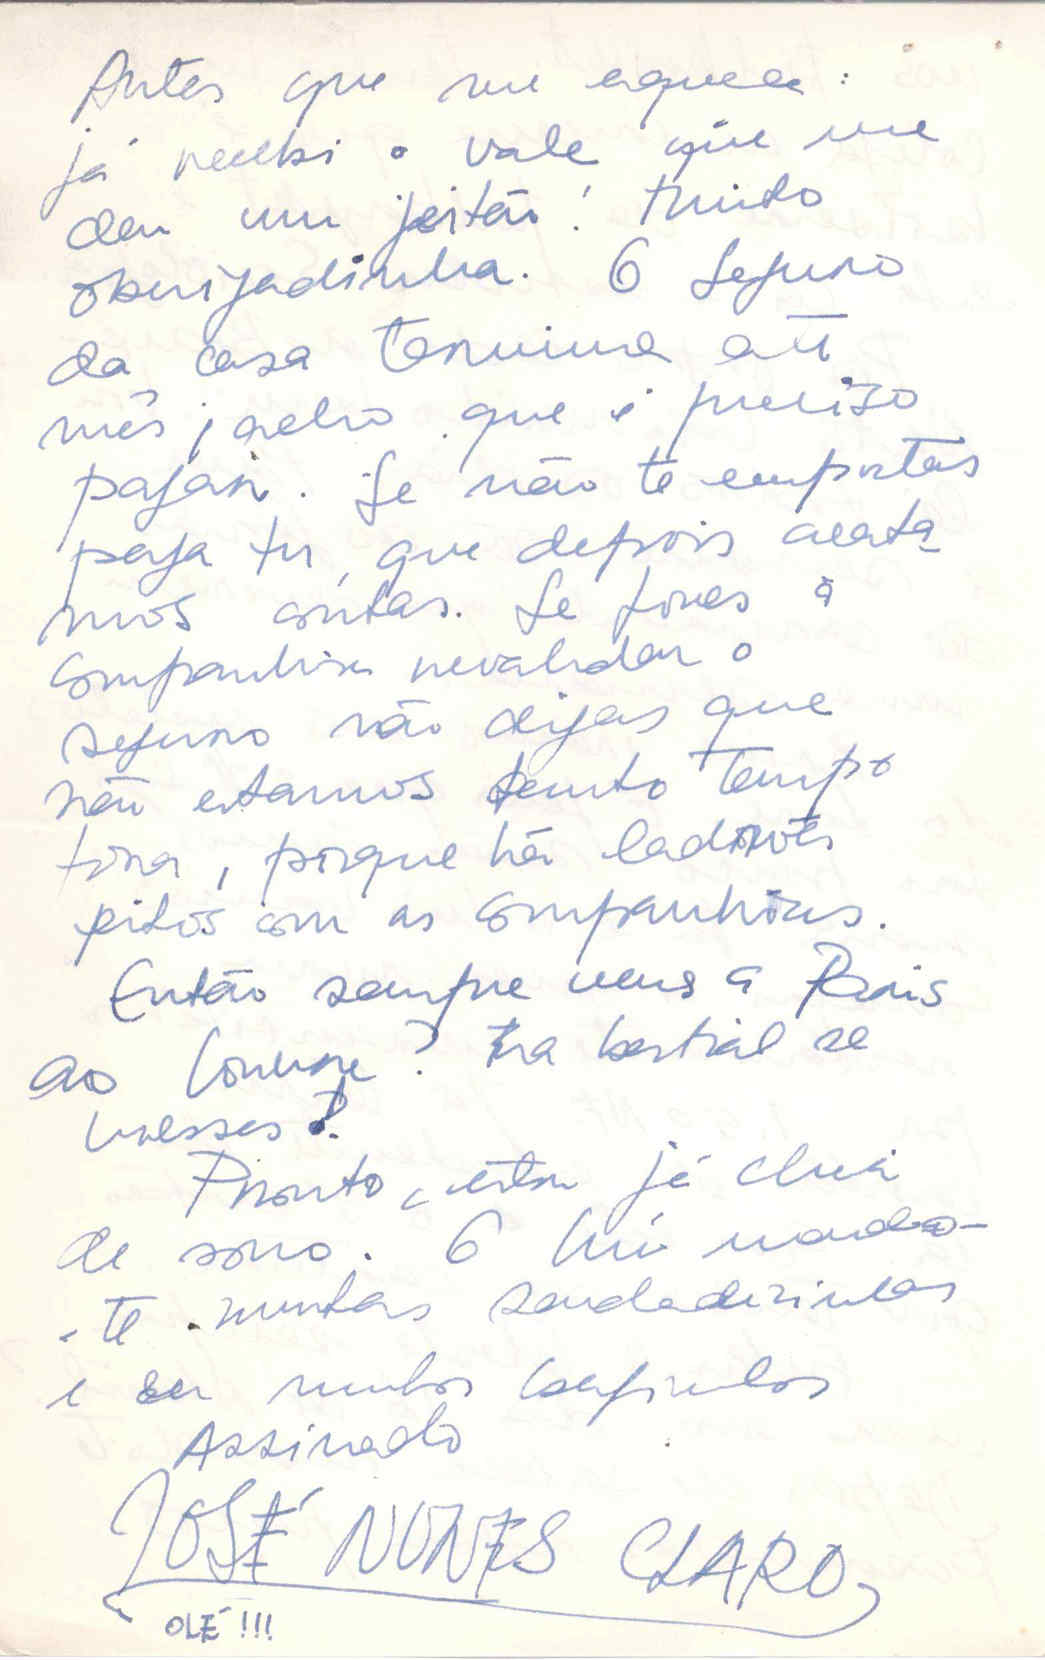 Antes que me esqueça:
já recebi o vale que me
deu um jeitão! Muito
obrigadinha. O Seguro
da casa termina
mês, acho que é preciso
pagar. Se não te importas
paga tu, que depois acerta
mos contas. Se fores à
Companhia revalidar o
seguro não digas que
não estamos tanto tempo
fora, porque há ladrões
feitos com as companhias.
Então sempre vens a Paris
ao Louvre? Era bestial se
viesses!
Pronto, estou já cheia
de sono. O mando-
-te muitas saudadezinhas
e eu muitos beijinhos
Assinado
JOSÉ NUNES CLARO
OLÉ!!!